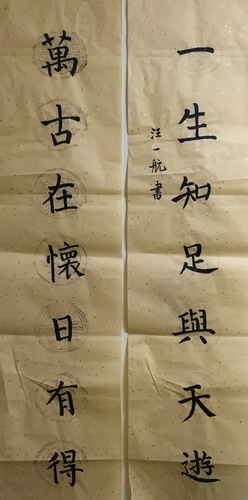 一生知足與天遊
汪一航書
萬古在懷日有得